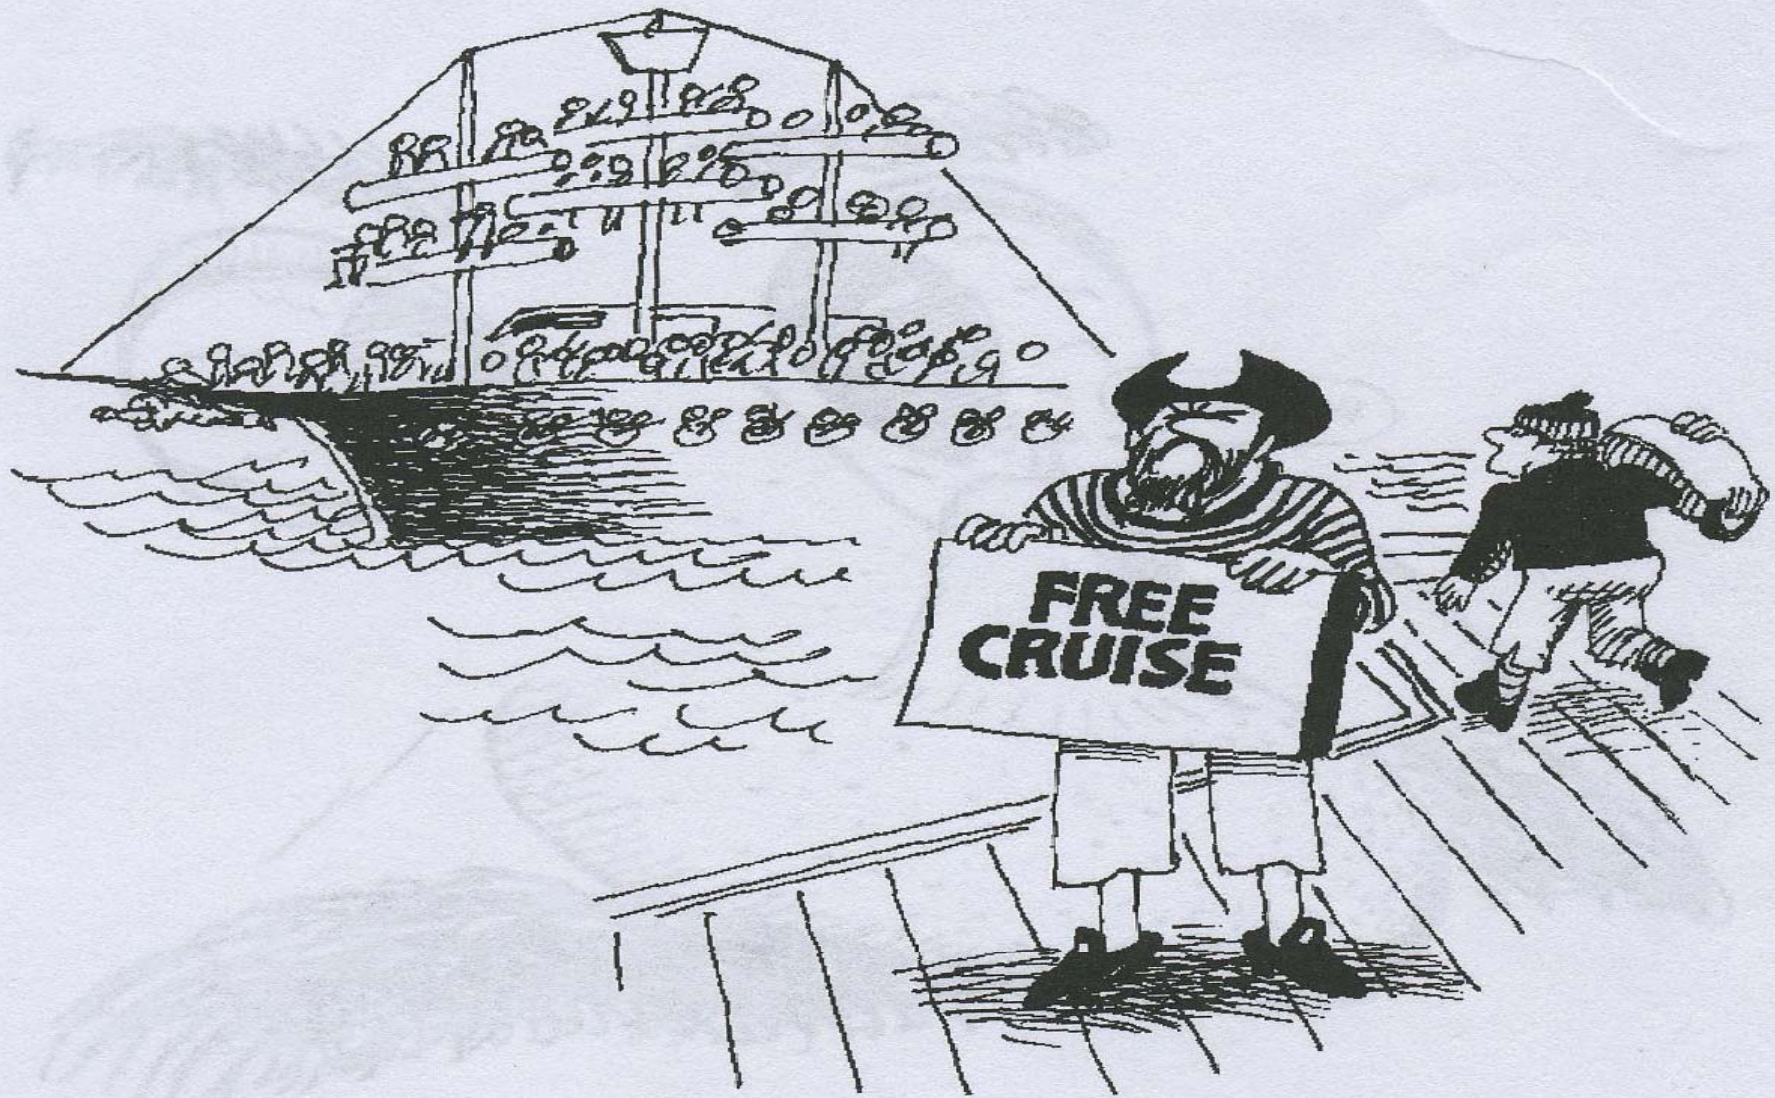 FREE
CRUISE